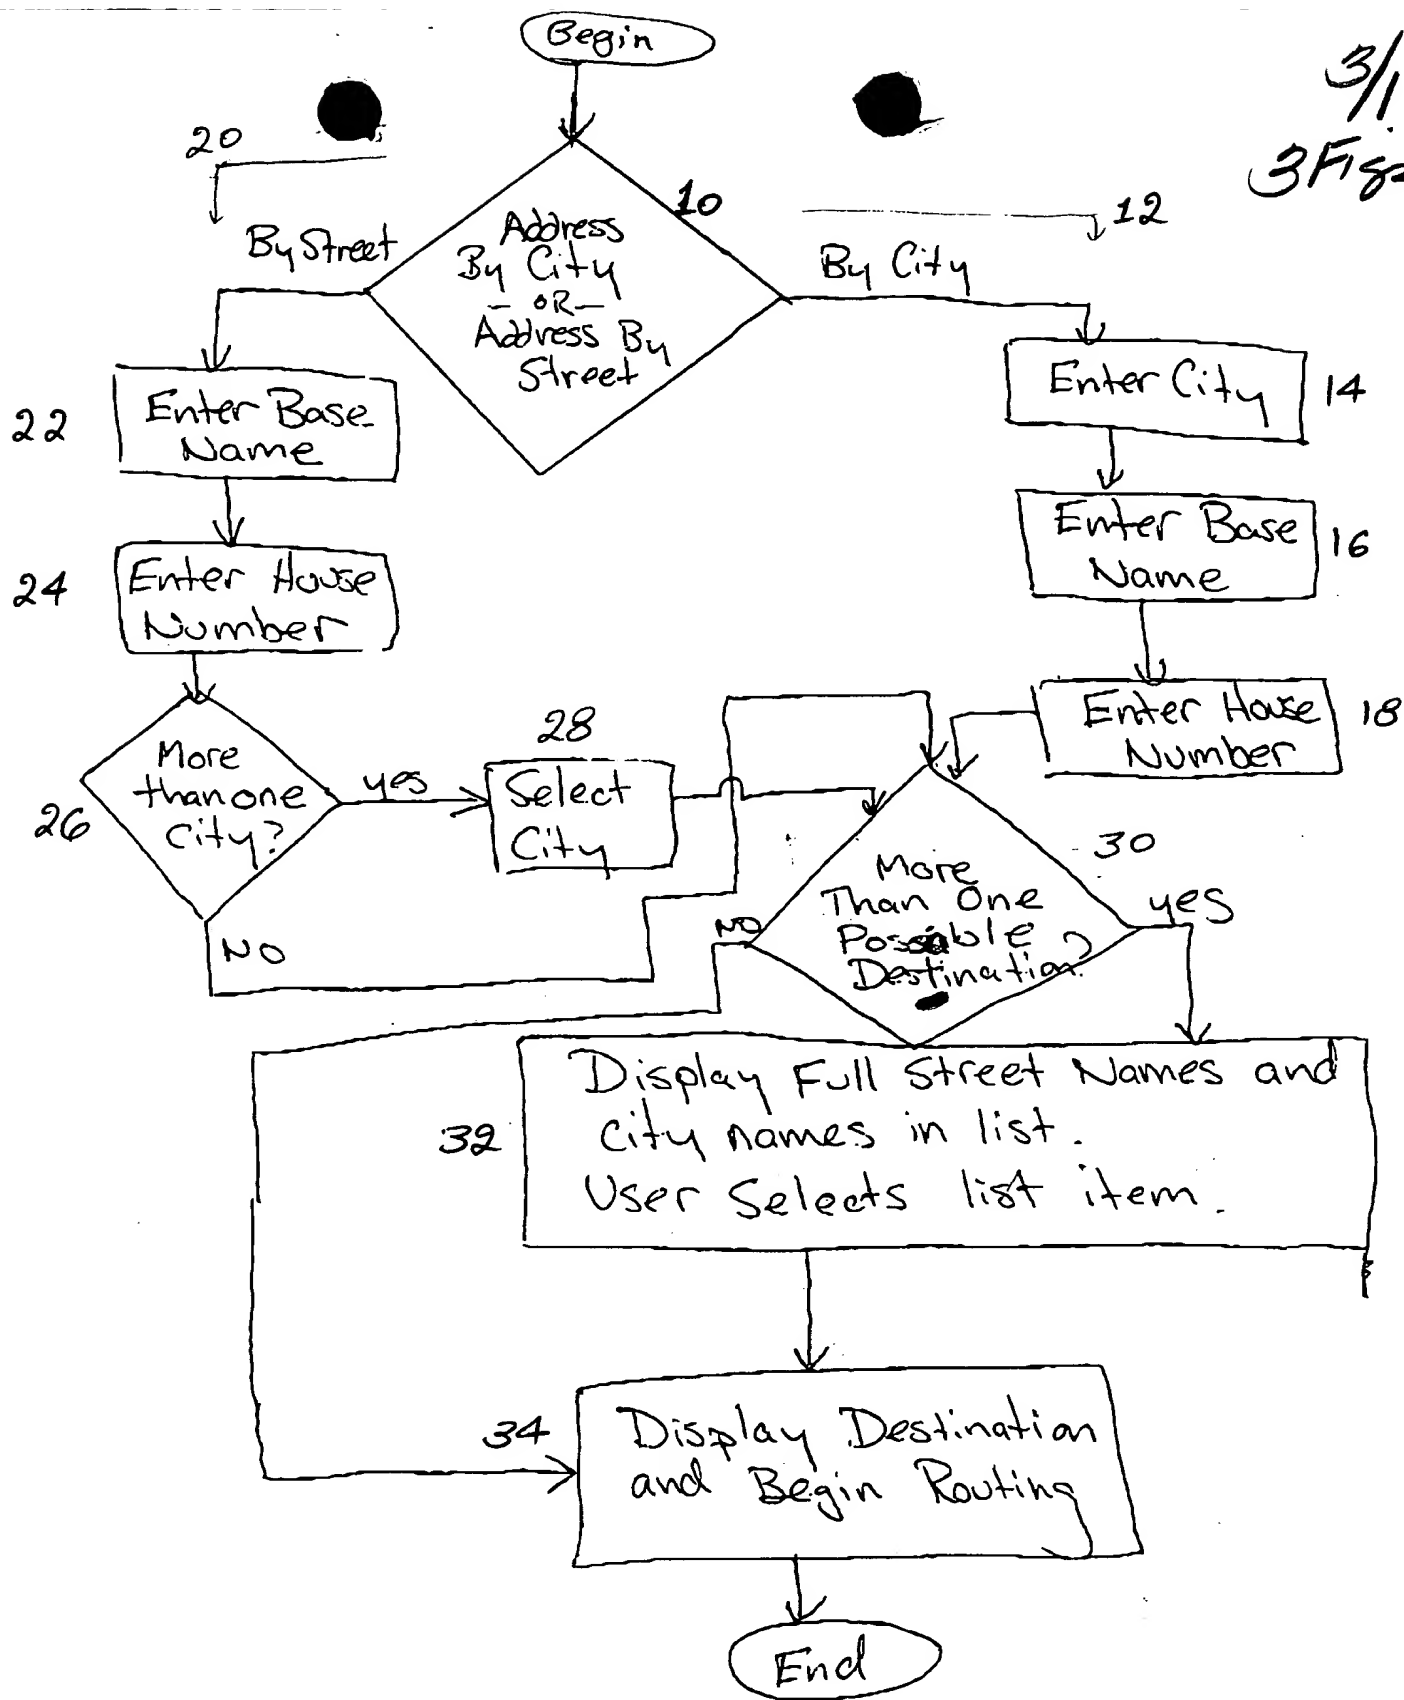 Begin
3/1
3 Figs
20
10
12
By Street
Address
By City
- OR -
Address By
Street
By City
Enter City
14
22
Enter Base
Name
Enter Base
Name
16
24
Enter House
Number
Enter House
Number
18
More
than one
City?
26
yes
28
Select
City
NO
30
More
Than One
Possible
Destination?
NO
yes
32
Display Full Street Names and
city names in list.
User Selects list item.
34
Display Destination
and Begin Routing
End